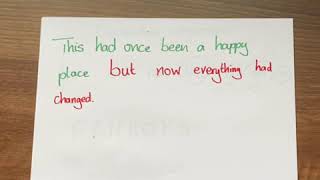 This had once been a happy
place but now everything had
changed.